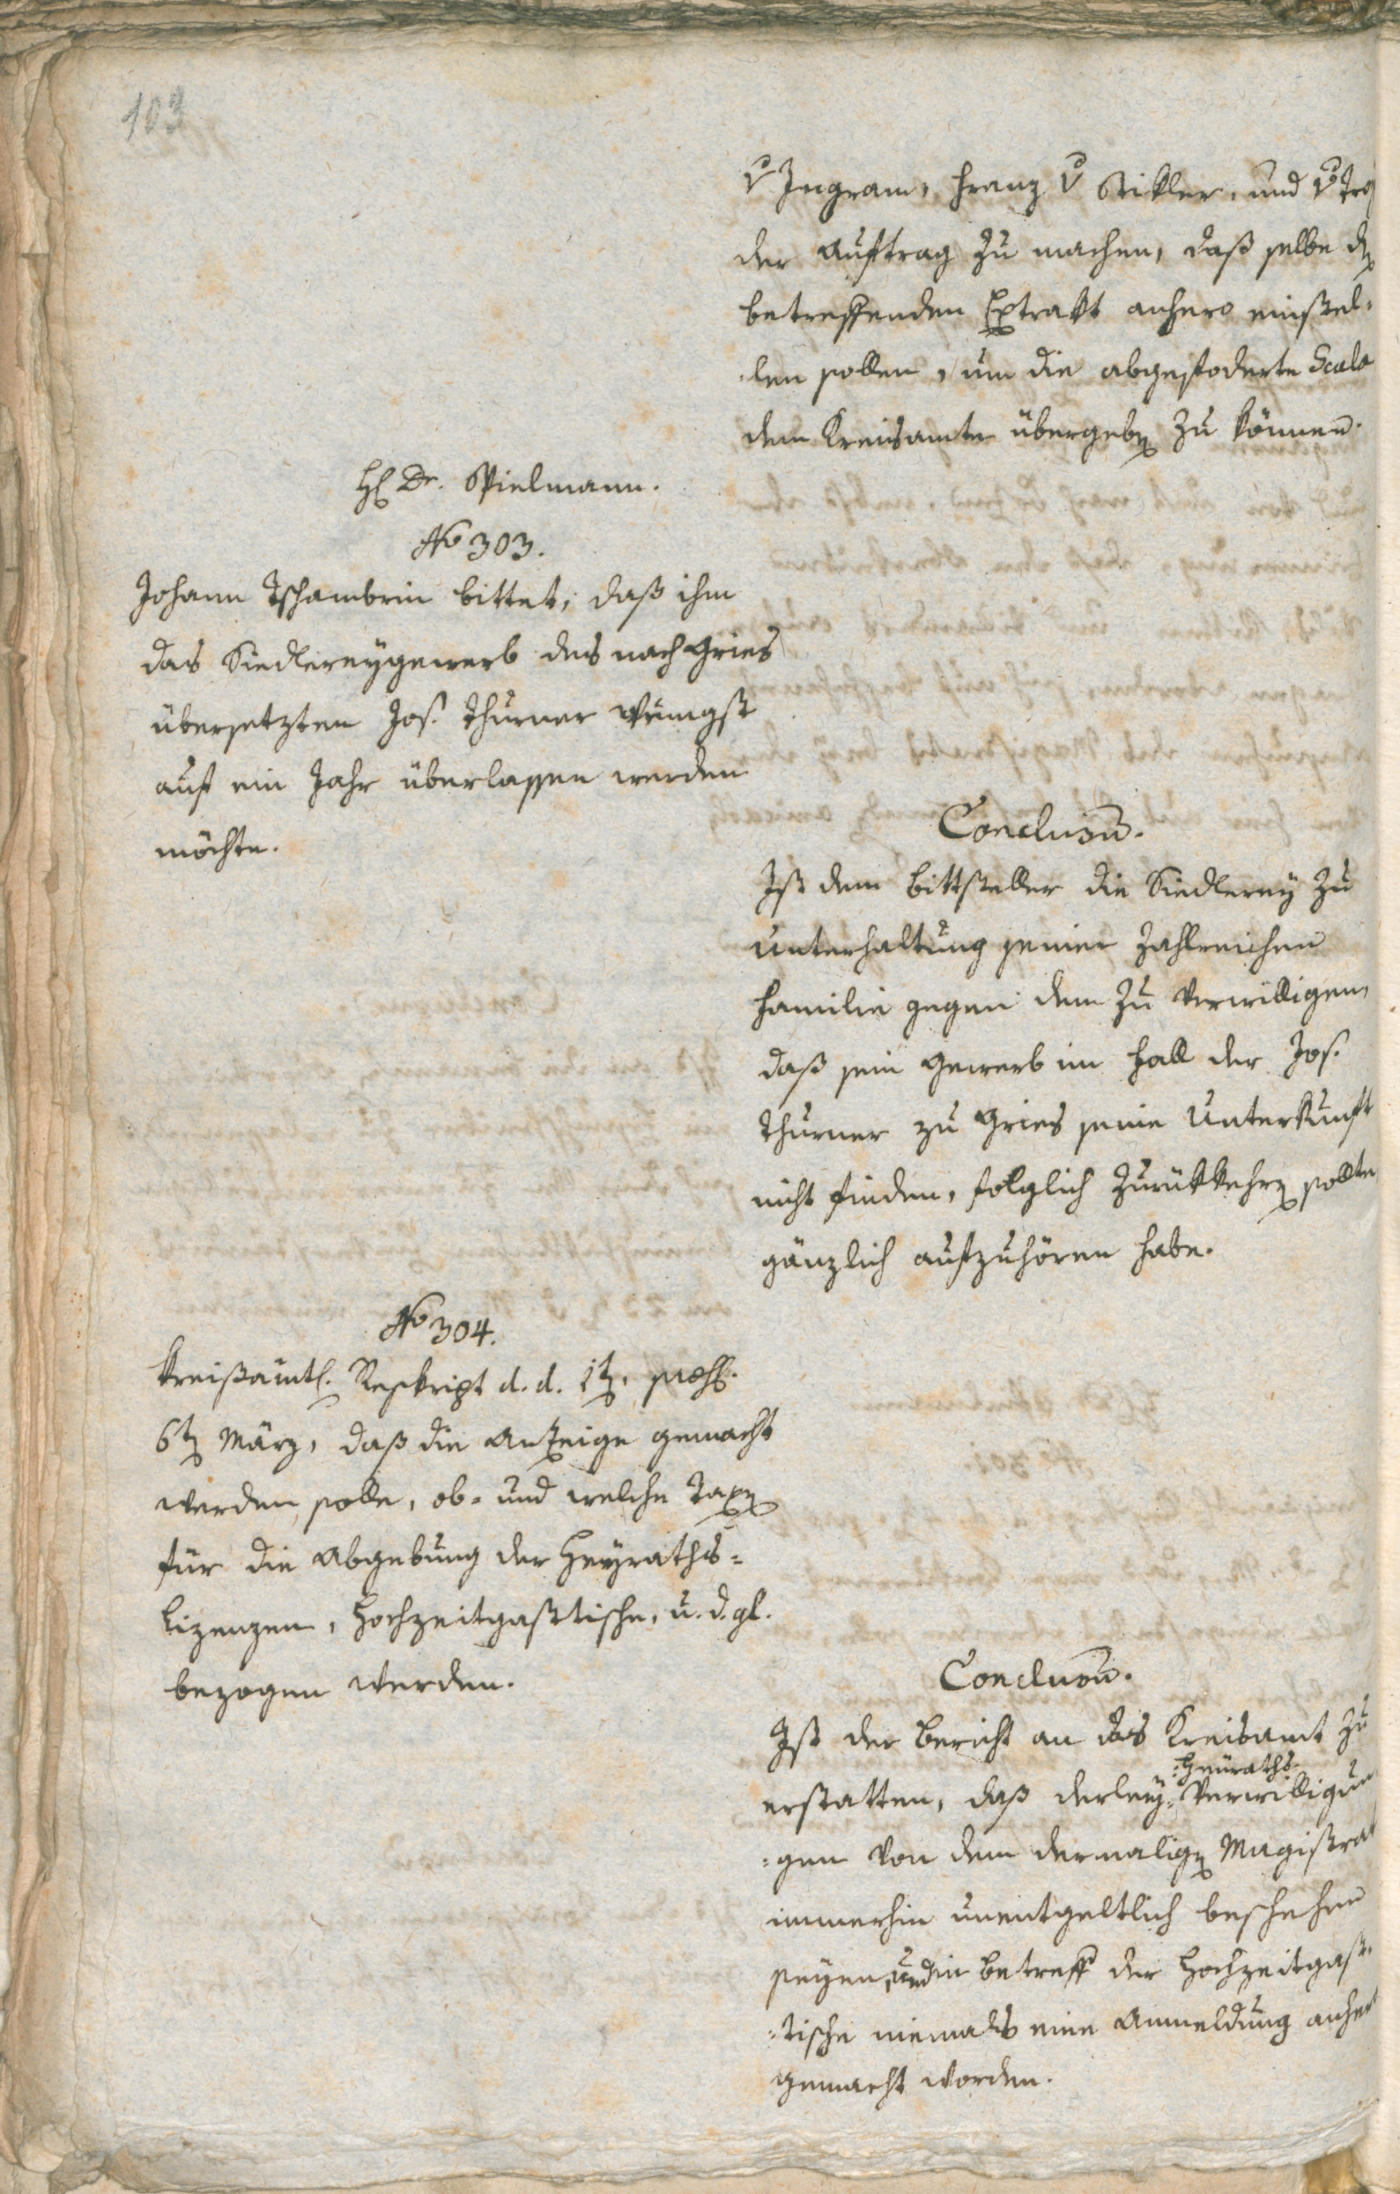 103
v Ingram, Franz v Stikler, und v Tro
der Auftrag zu machen, daß selbe den
betreffenden Extrakt anhero einstel-
len sollen, um die abgefoderte Scala
dem Kreisamte übergeben zu können.
H. Dr. Spielmann.
No 303.
Johann Tschambrin bittet, daß ihm
das Siedlereygewerb des nach Gries
übersetzten Jos. Thurner wenigst
auf ein Jahr überlassen werden
möchte.
Conclusum.
Ist dem Bittsteller die Siedlerey zu
Unterhaltung seiner zahlreichen
Familie gegen dem zu verwilligen,
daß sein Gewerb im Fall der Jos.
Thurner zu Gries seine Unterkunft
nicht finden, folglich zurükkehren sollte
gänzlich aufzuhören habe.
No 304.
Kreißämtl. Reskript d. d. 1ten, präs.
6ten März, daß die Anzeige gemacht
werden solle, ob- und welche Taxen
für die Abgebung der Heyraths-
Lizenzen, Hochzeitgasttische, u. d. gl.
bezogen werden.
Conclusum.
Ist der Bericht an das Kreisamt zu
erstatten, daß derley Heuraths-Verwilligun
-gen von dem dermaligen Magistrat
immerhin unentgeltlich beschehen
seyen, und in Betreff der Hochzeitgast-
-tische niemals eine Anmeldung anher
gemacht worden.